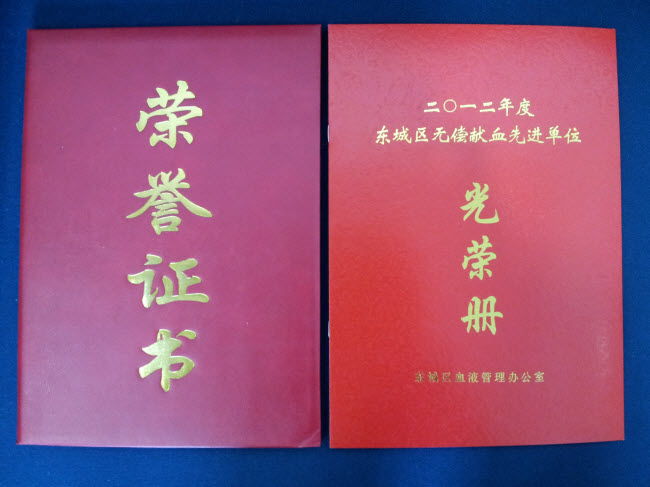 荣誉证书
二〇一二年度
东城区无偿献血先进单位
光荣册
东城区血液管理办公室